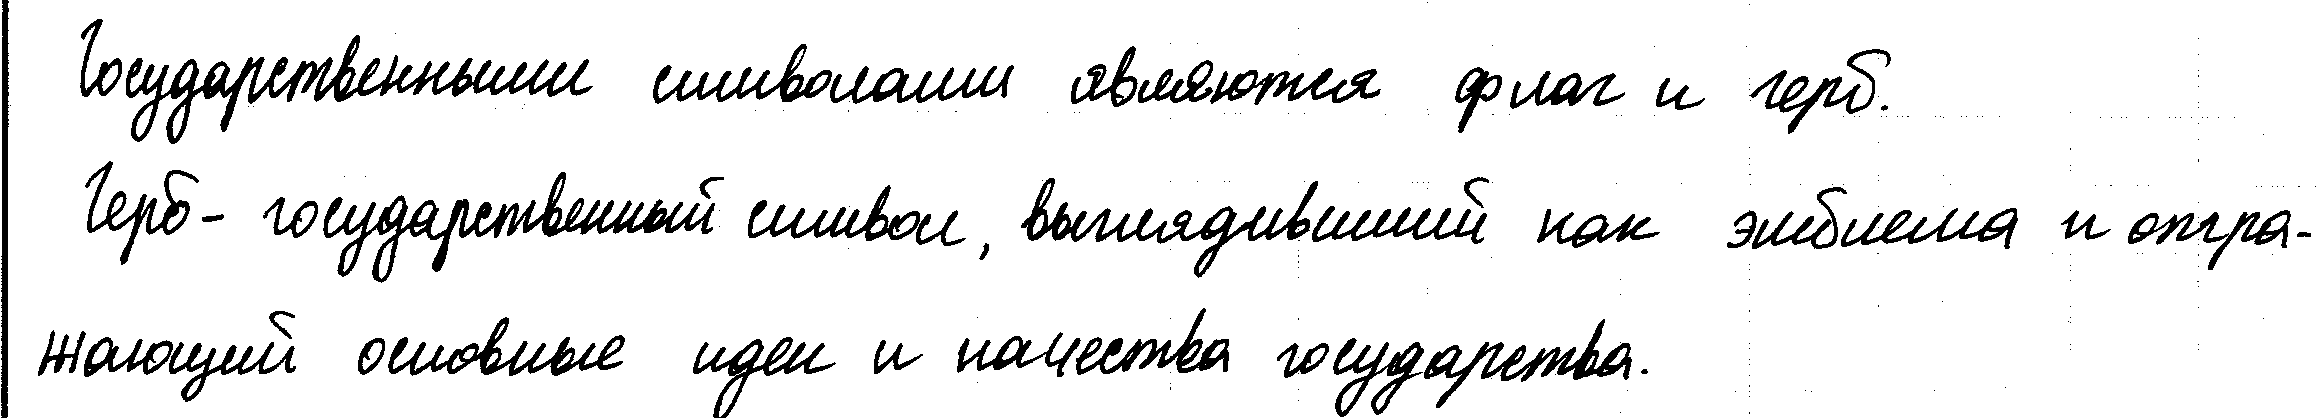 Государственными символами являются флаг и герб.
Герб - государственный символ, выглядивший как эмблема и отра-
жающий основные идеи и качества государства.